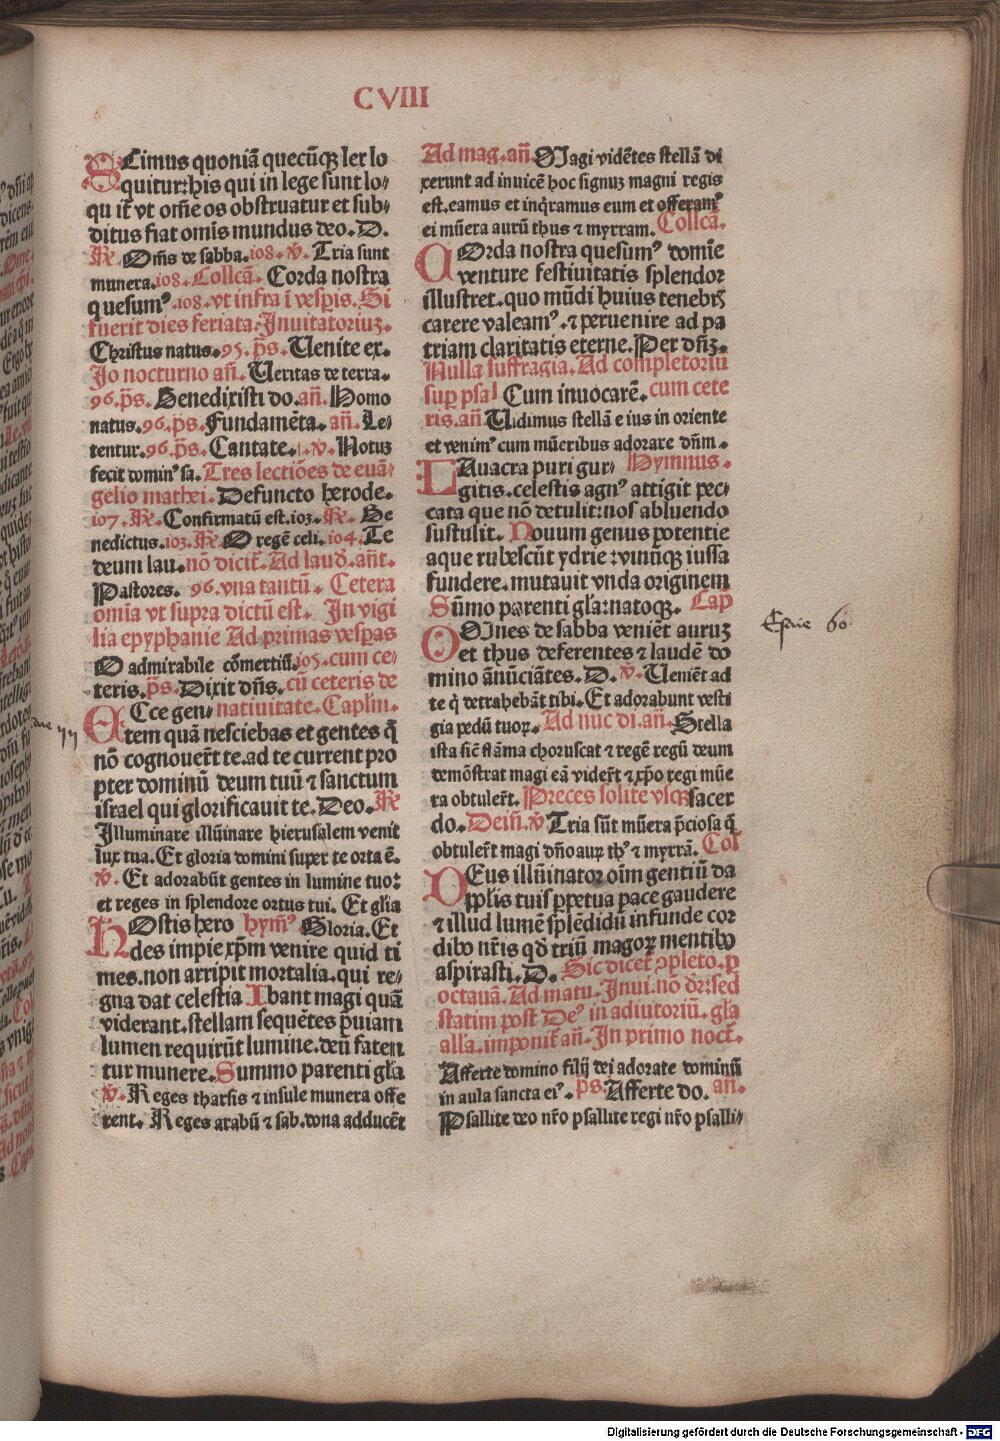 CVIII
SCimus quoniā quecūqꝫ lex lo
quitur:his qui in lege sunt lo⸗
qūit vt om̄e os obstruatur et sub⸗
ditus fiat omīs mundus deo. D.
℞. Om̄s de sabba.108. ꝟ. Tria sunt
munera.108. Collcā. Corda nostra
quesumꝰ.108.vt infra ī vesp̄is. Si
fuerit dies feriata. Inuitatoriuꝫ.
Christus natus.95. p̄s. Uenite ex.
Io nocturno añ. Ueritas de terra.
96. p̄s. Benedixisti do. añ. Homo
natus.96. p̄s. Fundamēta. añ. Le⸗
tentur.96. p̄s. Cantate. ꝟ. Notuꝫ
fecit dominꝰ sa. Tres lectiōes de euā⸗
gelio mathei. Defuncto herode.
107. ℞. Confirmatū est.103. ℞. Be
nedictus.103. ℞. O regē celi.104. Te
deum lau. nō dicit᷑. Ad laud̄. añt.
Pastores. 96. vna tantū. Cetera
omīa vt supra dictū est. In vigi
lia epyphanie Ad primas vesp̄as
O admirabile cōmertiū.105. cum ce⸗
teris. p̄s. Dixit dn̄s. cū ceteris de
ECce gen⸗ natiuitate. Caplm̄.
tem quā nesciebas et gentes q̄
nō cognouer̄t te. ad te current pro
pter dominū deum tuū ⁊ sanctum
israel qui glorificauit te. Deo. ℞
Illuminare illūinare hierusalem venit
lux tua. Et gloria domini super te orta ē.
ꝟ. Et adorabūt gentes in lumine tuo:
et reges in splendore ortus tui. Et gl̄ia
HOstis hero hym̄ꝰ Gloria. Et
des impie xp̄m venire quid ti
mes. non arripit mortalia. qui re⸗
gna dat celestia Ibant magi quā
viderant. stellam sequētes p̄uiam
lumen requirūt lumine. deū faten
tur munere. Summo parenti gl̄a
ꝟ. Reges tharsis ⁊ insule munera offe
rent. Reges arabū ⁊ sab. dona adducēt
Ad mag. añ. Magi vidētes stellā di
xerunt ad inuicē hoc signuꝫ magni regis
est. eamus et inq̄ramus eum et offeramꝰ
ei mūera aurū thus ⁊ myrram. Collcā.
COrda nostra quesumꝰ domīe
venture festiuitatis splendor
illustret. quo mūdi huius tenebrꝭ
carere valeamꝰ. ⁊ peruenire ad pa
triam claritatis eterne. Per dn̄ꝫ.
Nulla suffragia. Ad completoriū
sup psal Cum inuocarē. cum cete
ris. añ Uidimus stellā eius in oriente
et venimꝰ cum mūeribus adorare dn̄m.
LAuacra puri gur⸗ Hymnus.
gitis. celestis agnꝰ attigit pec⸗
cata que nō detulit: nos abluendo
sustulit. Nouum genus potentie
aque rubescūt ydrie: vinūqꝫ iussa
fundere. mutauit vnda originem
Sūmo parenti gl̄a: natoqꝫ. Cap̄
OMnes de sabba veniēt auruꝫ
et thus deferentes ⁊ laudē do
mino ānūciātes. D. ꝟ. Ueniēt ad
te q̇ detrahebāt tibi. Et adorabunt vesti
gia pedū tuoꝝ. Ad nūc di. añ. Stella
ista sic̄ flāma choruscat ⁊ regē regū deum
demōstrat magi eā vider̄t ⁊ xp̄o regi mūe
ra obtuler̄t. Preces solite vsqꝫ sacer
do. Deiñ. ꝟ Tria sūt mūera p̄ciosa q̄
obtuler̄t magi dn̄o auꝝ thꝰ ⁊ myrrā. Col̄
DEus illūinator oīm gentiū da
pp̄lis tuis p̄petua pace gaudere
⁊ illud lumē splēdidū infunde cor
dibꝰ nr̄is qd̄ triū magoꝝ mentibꝰ
aspirasti. D. Sic dicet᷑ ꝯpleto. ꝑ
octauā. Ad matu. Inui. nō dr̄: sed
statim post Deꝰ in adiutoriū. gl̄a
all̄a. imponit᷑ añ. In primo noct̄.
Afferte domino filij dei adorate dominū
in aula sancta eiꝰ. p̄s. Afferte do. añ.
Psallite deo nr̄o psallite regi nr̄o psalli⸗
60
Digitalisierung gefördert durch die Deutsche Forschungsgemeinschaft - DFG